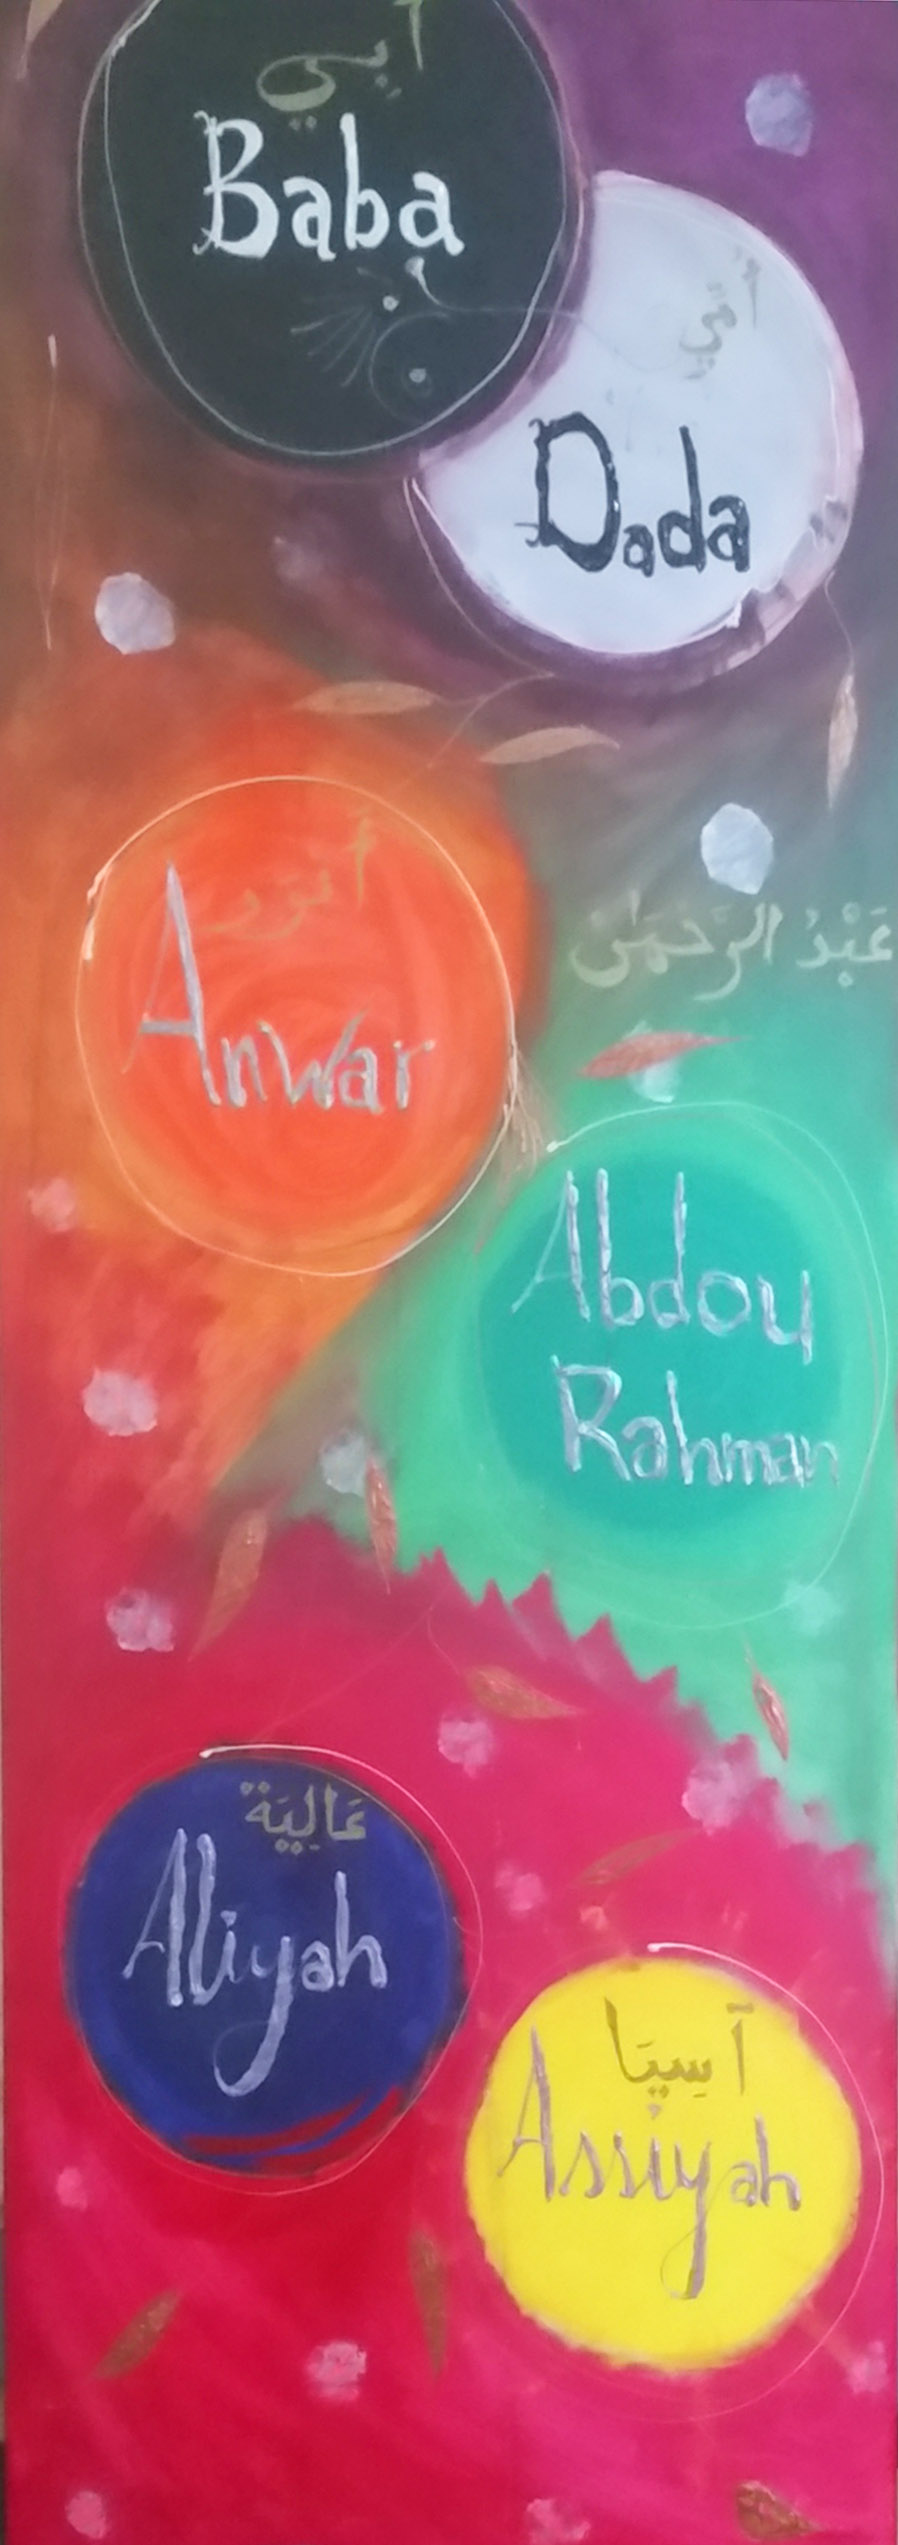 أبي
Baba
أمي
Dada
أنور
Anwar
عَبْدُ الرَّحْمَٰن
Abdou
Rahman
عَالِيَة
Aliyah
آسِيَا
Assiyah